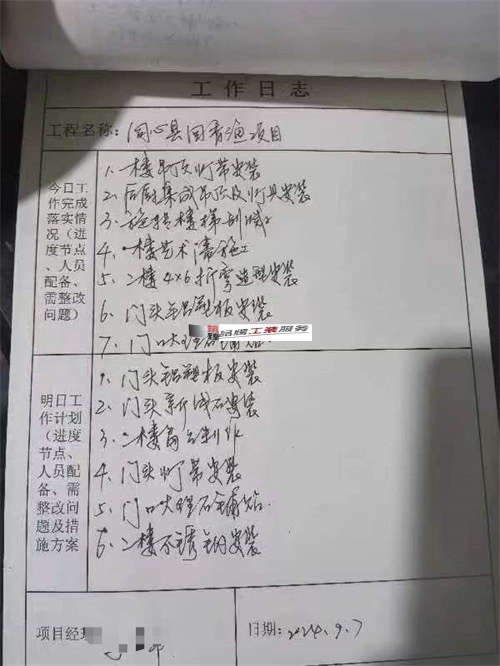 工作日志
工程名称: 同心县回香渔项目
今日工作完成落实情况(进度节点、人员配备、需整改问题)
1、一楼吊顶灯带安装
2、后厨集成吊顶及灯具安装
3、旋转楼梯
4、一楼艺术漆施工
5、二楼4×6折弯造型安装
6、门头铝塑板安装
品牌工装服务
7、门口大理石铺贴
明日工作计划(进度节点、人员配备、需整改问题及措施方案
1、门头铝塑板安装
2、门头安装
3、二楼制作
4、门头灯带安装
5、门口大理石铺贴.
6、二楼不锈钢安装
项目经
日期: 2024.9.7